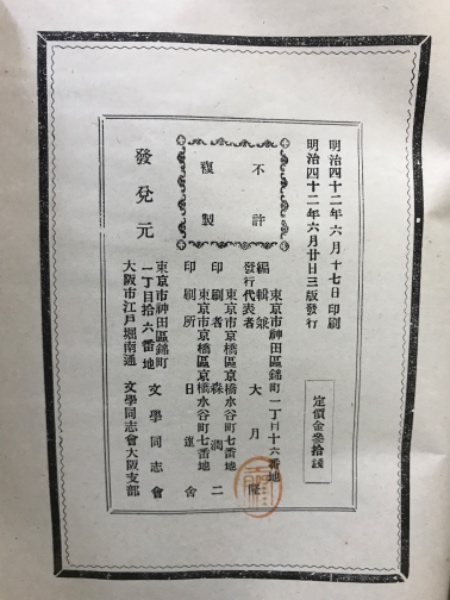 明治四十二年六月十七日印刷
明治四十二年六月廿日三版發行
定價金參拾錢
不許
複製
東京市神田區錦町一丁目十六番地
編輯兼
發行代表者 大月隆
東京市京橋區京橋水谷町七番地
印刷者 森潤二
東京市京橋區京橋水谷町七番地
印刷所 日進舍
發兌元
東京市神田區錦町
一丁目拾六番地 文學同志會
大阪市江戸堀南通 文學同志會大阪支部